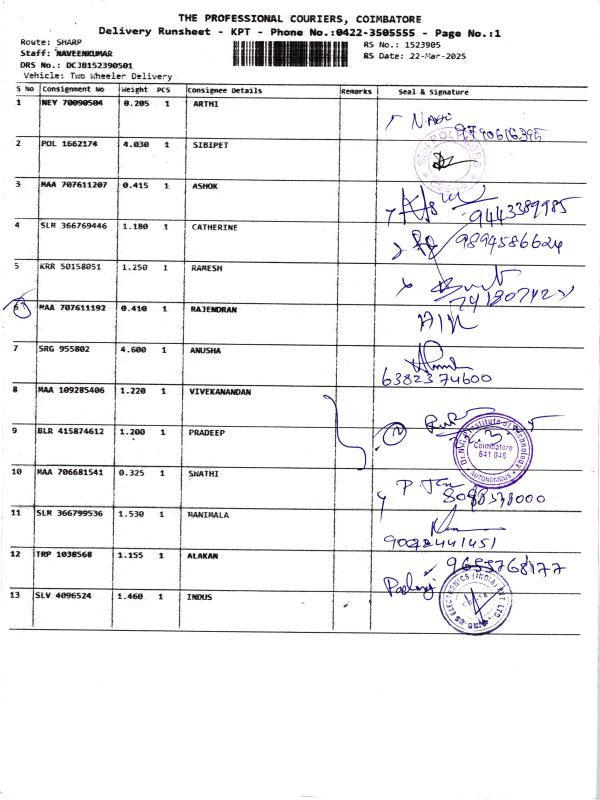 THE PROFESSIONAL COURIERS, COIMBATORE
Delivery Runsheet - KPT - Phone No.:0422-3505555 - Page No.:1
Route: SHARP
RS No.: 1523905
Staff: NAVEENKUMAR
RS Date: 22-Mar-2025
DRS No.: DCJB152390501
Vehicle: Two Wheeler Delivery
S No Consignment No Weight PCS Consignee Details Remarks Seal & Signature
1 NEY 70090504 0.205 1 ARTHI
2 POL 1662174 4.030 1 SIBIPET
3 MAA 707611207 0.415 1 ASHOK
9443389985
4 SLM 366769446 1.180 1 CATHERINE
9894586624
5 KRR 50158051 1.250 1 RAMESH
6 MAA 707611192 0.410 1 RAJENDRAN
7 SRG 955802 4.600 1 ANUSHA
6382374600
8 MAA 109285406 1.220 1 VIVEKANANDAN
9 BLR 415874612 1.200 1 PRADEEP
2
Dr.N.G.P. Institute of Technology
Coimbatore
641 048
AUTONOMOUS
10 MAA 706681541 0.325 1 SWATHI
11 SLR 366799536 1.530 1 MANIMALA
12 TRP 1038568 1.155 1 ALAKAN
9655768177
13 SLV 4096524 1.460 1 INDUS
ELECTRONICS (INDIA) PVT LTD